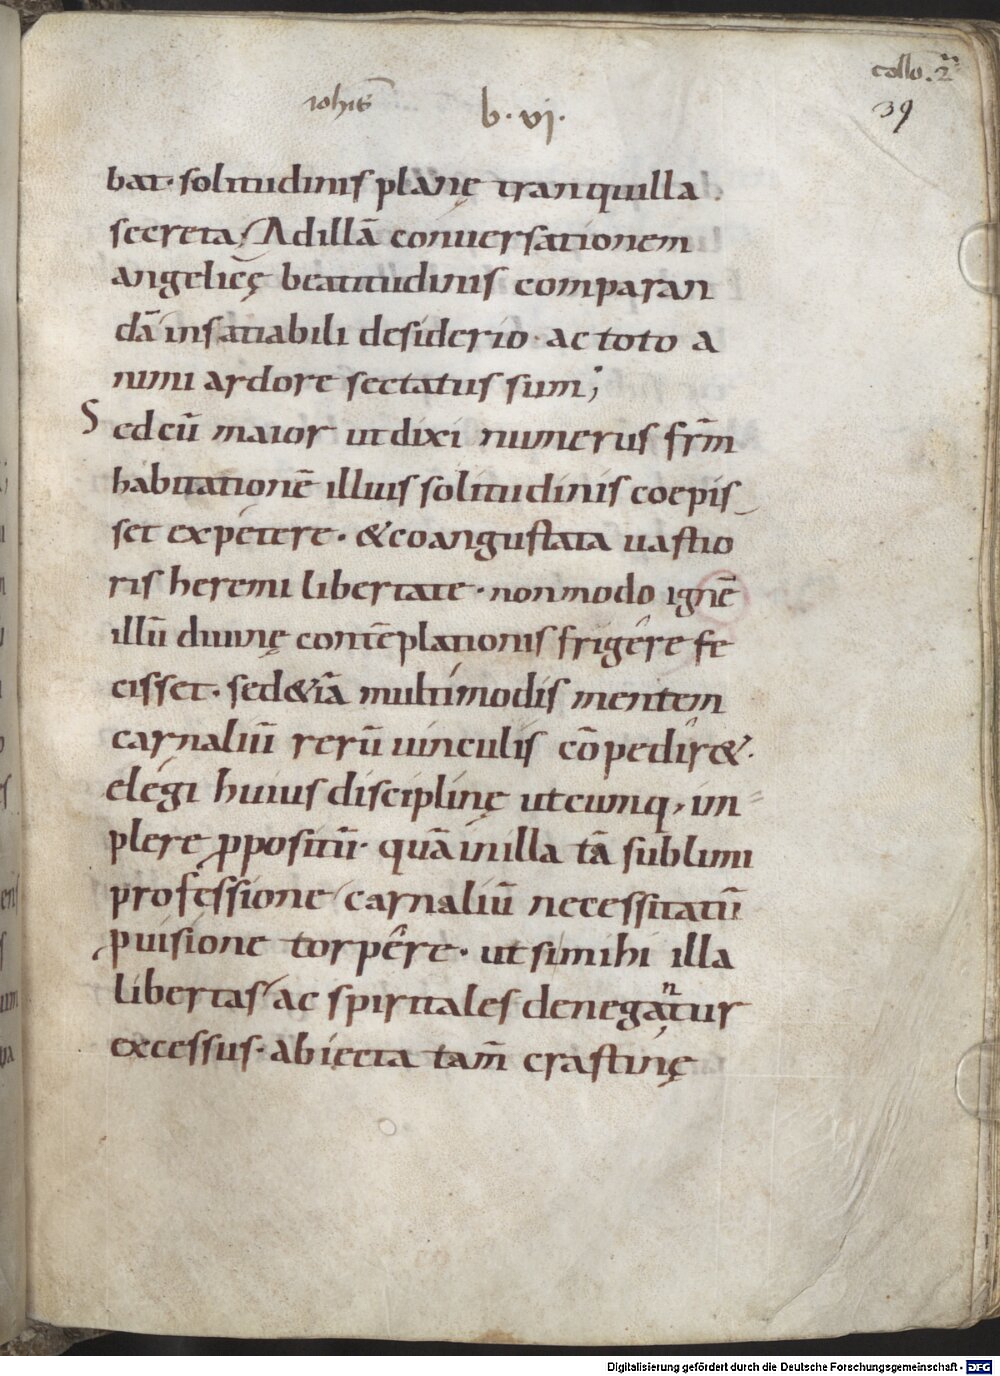 collo. 2ª
iohīs b · vi ·
39
bat · solitudinis planę tranquilla
secreta / Ad illā conuersationem
angelicę beatitudinis comparan
dā insatiabili desiderio · ac toto a
nimi ardore sectatus sum ;
Sed cū maior ut dixi numerus frm̄
habitationē illius solitudinis coepis-
set expetere · & coangustata uastio
ris heremi libertate · non modo ignē
illū diuinę contēplationis frigêre fe
cisset · sed &iā multimodis mentem
carnaliū rerū uinculis cōpedir& ·
elegi huius disciplinę utcumq, im-
plere ppositū · quā in illa tā sublimi
professione carnaliū necessitatū
puisione torpêre · ut si mihi illa
libertas ac spiritales denegantur
excessus · abiecta tam̄ crastinę
Digitalisierung gefördert durch die Deutsche Forschungsgemeinschaft - DFG